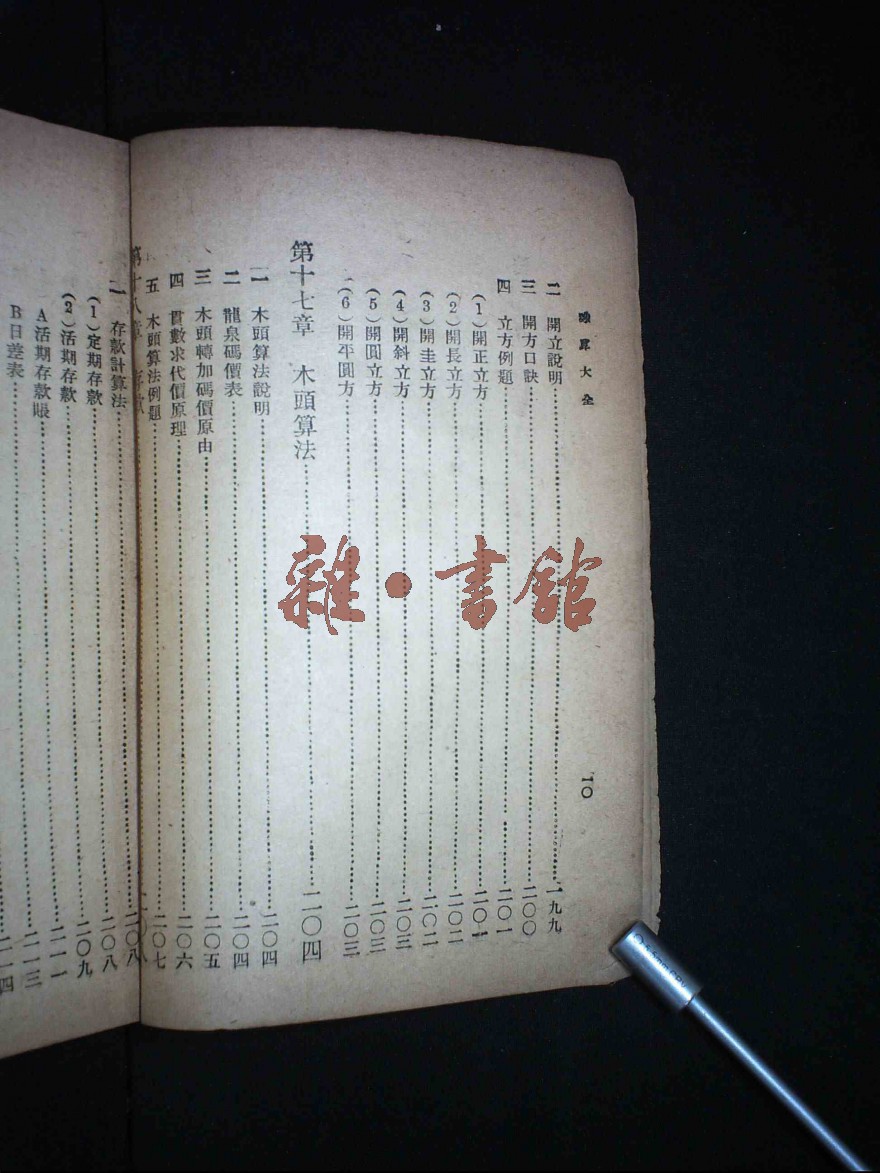 珠算大全
10
二 開立說明……一九九
三 開方口訣……二〇〇
四 立方例題……二〇一
(1)開正立方……二〇一
(2)開長立方……二〇二
(3)開圭立方……二〇二
(4)開斜立方……二〇三
(5)開圓立方……二〇三
(6)開平圓方……二〇三
第十七章 木頭算法……二〇四
一 木頭算法說明……二〇四
二 龍泉碼價表……二〇四
三 木頭轉加碼價原由……二〇五
四 貫數求代價原理……二〇六
五 木頭算法例題……二〇七
第十八章 存款……二〇八
一 存款計算法……二〇八
(1)定期存款……二〇八
(2)活期存款……二〇九
A活期存款賬……二一一
B日差表……二一三
二一四
雜·書館